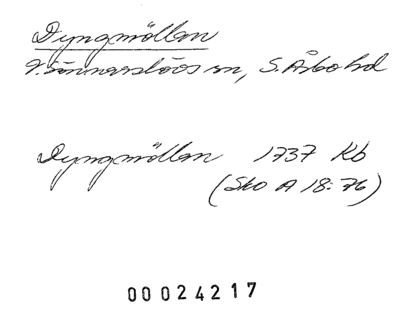 Dyngmöllan
V. Sönnarslövs sn, S. Åsbo hd
Dyngmöllan 1737 Kb
(Sko A 18:76)
00024217